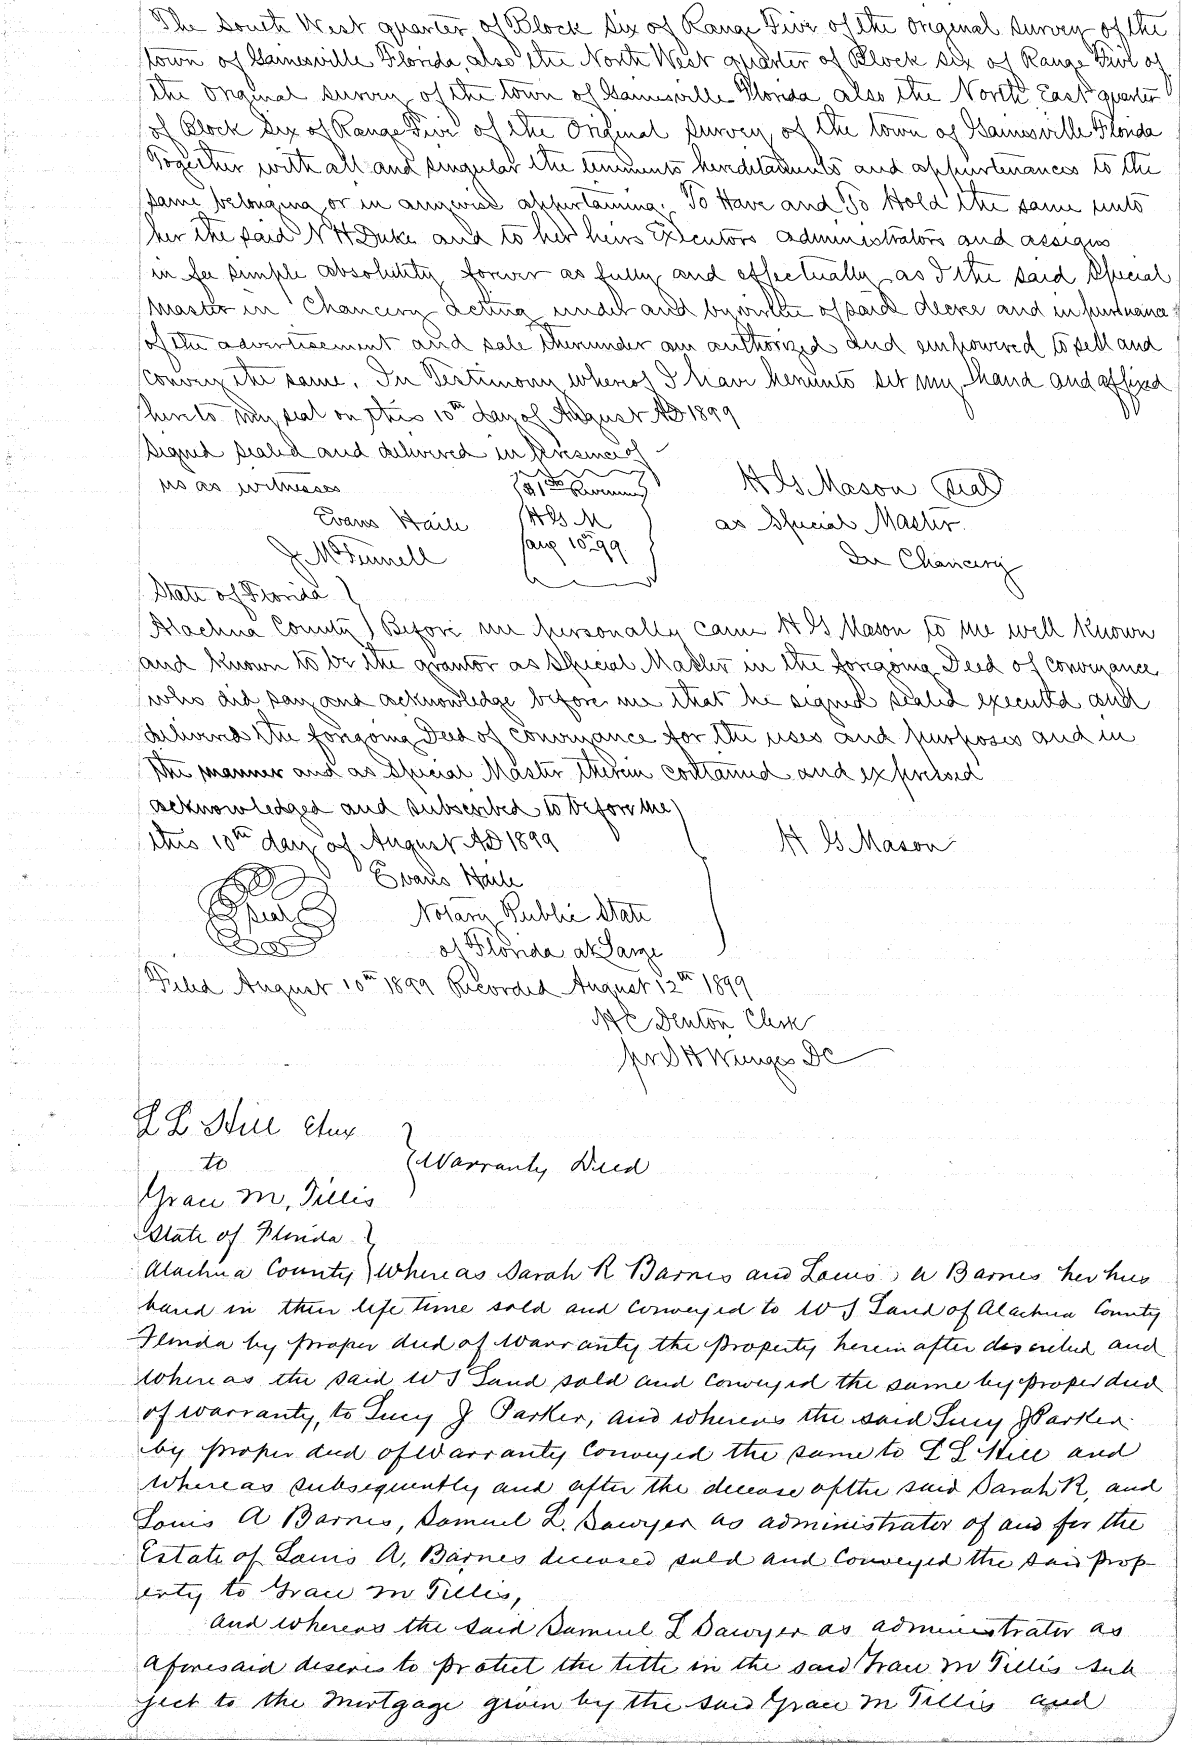 The South West quarter of Block Six of Range Five of the Original Survey of the
town of Gainesville Florida, also the North West quarter of Block Six of Range Five of
the Original Survey of the town of Gainesville Florida also the North East quarter
of Block Six of Range Five of the Original Survey of the town of Gainesville Florida
Together with all and singular the tenements hereditaments and appurtenances to the
same belonging or in anywise appertaining. To Have and To Hold the same unto
her the said N H Duke and to her heirs Executors administrators and assigns
in fee simple absolutely forever as fully and effectually as I the said Special
Master in Chancery acting under and by virtue of said decree and in pursuance
of the advertisement and sale thereunder am authorized and empowered to sell and
convey the same. In Testimony whereof I have hereunto set my hand and affixed
hereto my seal on this 10th day of August AD 1899
Signed sealed and delivered in Presence of
us as witnesses
H G Mason (Seal)
Evans Haile
H G M
as Special Master
Aug 10th 99
In Chancery
State of Florida }
Alachua County } Before me personally came H G Mason to me well known
and known to be the grantor as Special Master in the foregoing Deed of Conveyance
who did say and acknowledge before me that he signed sealed executed and
delivered the foregoing Deed of Conveyance for the uses and purposes and in
the manner and as Special Master therein contained and expressed
acknowledged and subscribed to before me }
this 10th day of August AD 1899
H G Mason
Evans Haile
Seal
Notary Public State
of Florida at Large
Filed August 10th 1899 Recorded August 12th 1899
H C Denton Clerk
DC
L L Hill
to } Warranty Deed
Grace M. Tillis
State of Florida }
Alachua County } Whereas Sarah R Barnes and Louis A Barnes her hus
band in their life time sold and conveyed to W S Land of Alachua County
Florida by proper deed of warranty the property herein after described and
Whereas the said W S Land sold and conveyed the same by proper deed
of warranty, to Lucy J Parker, and whereas the said Lucy J Parker
by proper deed of warranty conveyed the same to L L Hill and
whereas subsequently and after the decease of the said Sarah R, and
Louis A Barnes, Samuel L. Sawyer as administrator of and for the
Estate of Louis A, Barnes deceased sold and conveyed the said prop
erty to Grace M Tillis,
and whereas the said Samuel L Sawyer as administrator as
aforesaid desires to protect the title in the said Grace M Tillis sub
ject to the mortgage given by the said Grace M Tillis and